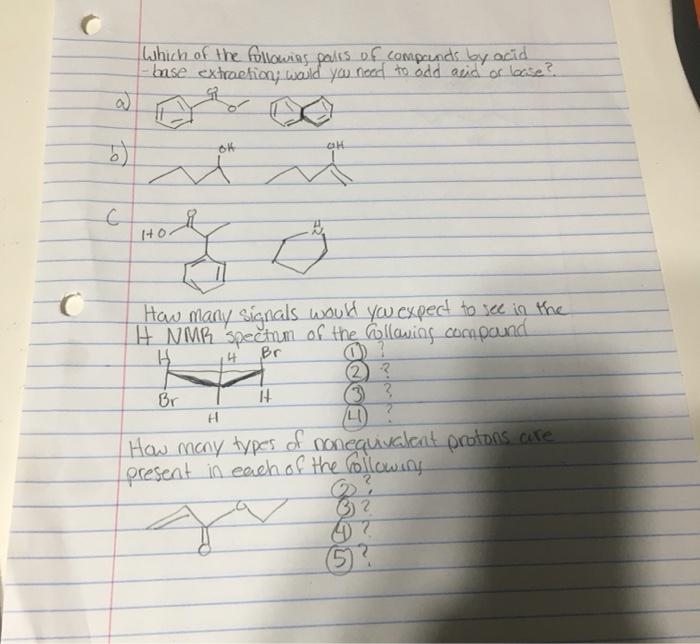 Which of the following pairs of compounds by acid
-base extraction; would you need to add acid or base?
a)
O
O
b)
OH
OH
C
HO
O
H
N
How many signals would you expect to see in the
H NMR spectrum of the following compound
H H Br
① ?
② ?
③ ?
④ ?
Br H
H
How many types of nonequivalent protons are
present in each of the following
② ?
③ ?
④ ?
⑤ ?
O
O